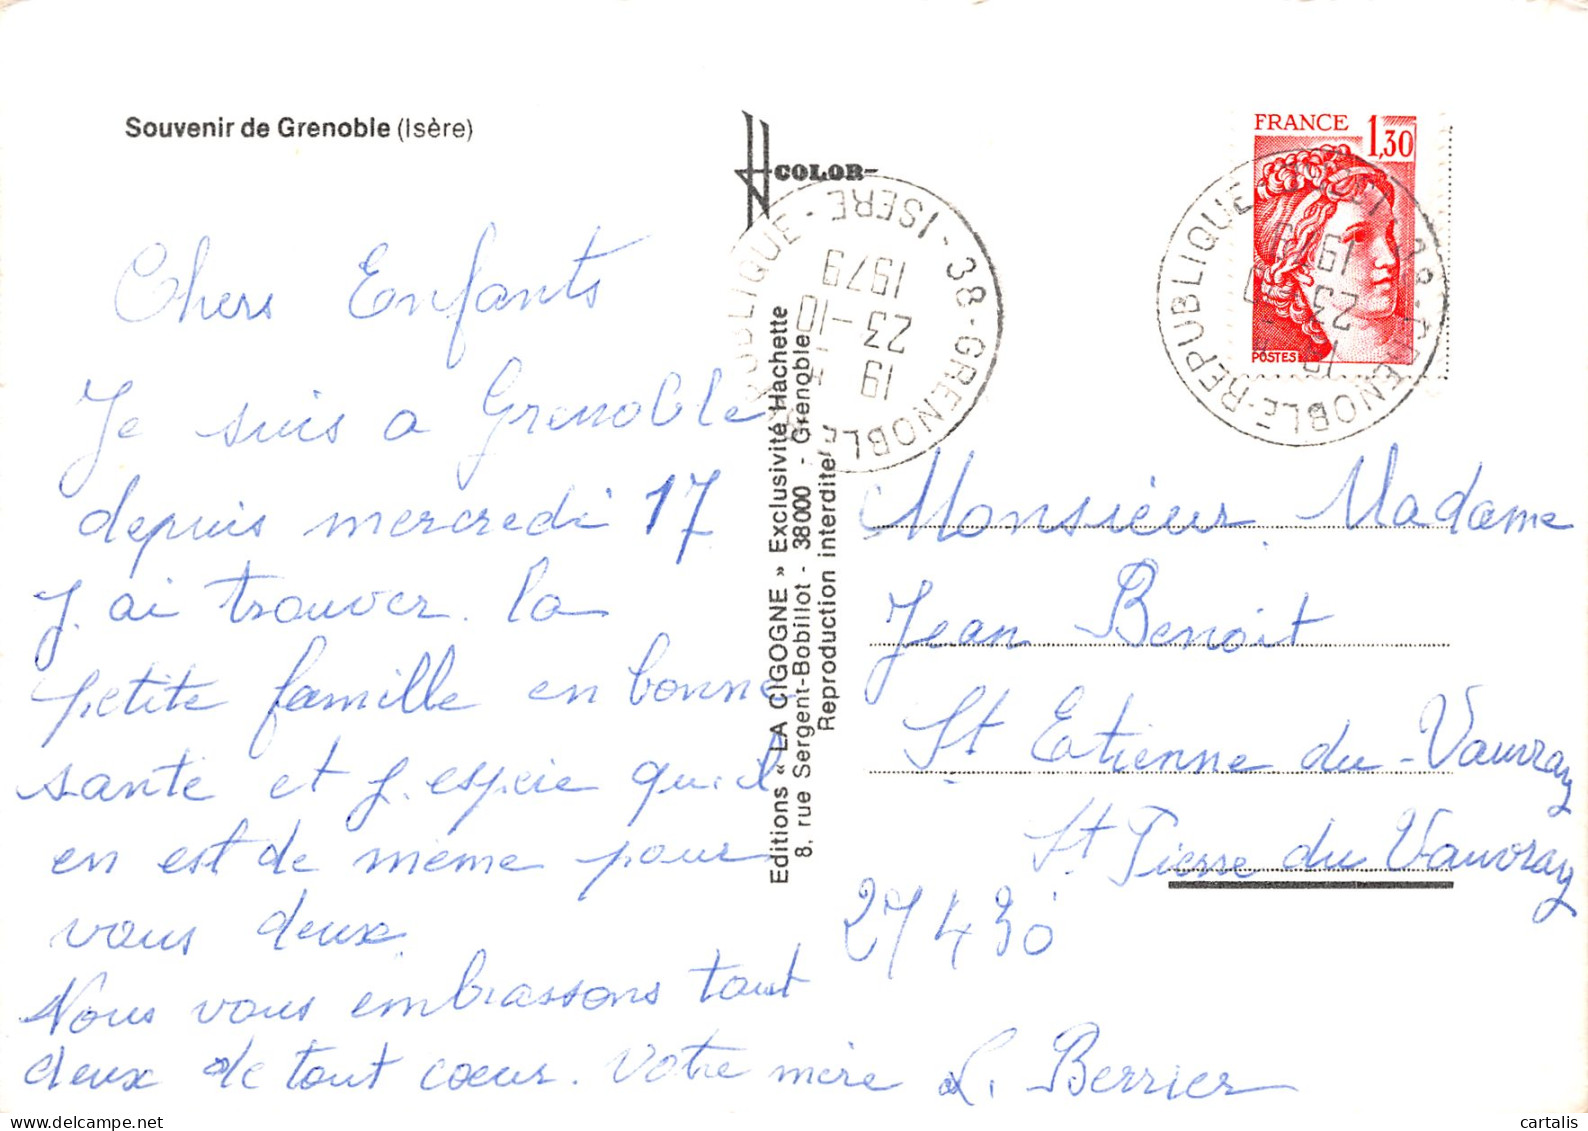 Souvenir de Grenoble (Isère)
COLOR
FRANCE 1,30
POSTES
38 - GRENOBLE - REPUBLIQUE - ISERE
19 H
23 -10
1979
38 - GRENOBLE - REPUBLIQUE - ISERE
19 H
23 -10
1979
Chers Enfants
Je suis a Grenoble
depuis mercredi 17
J. ai trouver la
petite famille en bonne
santé et j. espère qu. il
en est de même pour
vous deux.
Nous vous embrassons tout
deux de tout coeur. Votre mère L. Berrier
Editions « LA CIGOGNE » Exclusivité Hachette
8, rue Sergent-Bobillot - 38000 - Grenoble
Reproduction interdite
Monsieur Madame
Jean Benoit
St Etienne du-Vauvray
St Pierre du Vauvray
27430
cartalis
delcampe.net